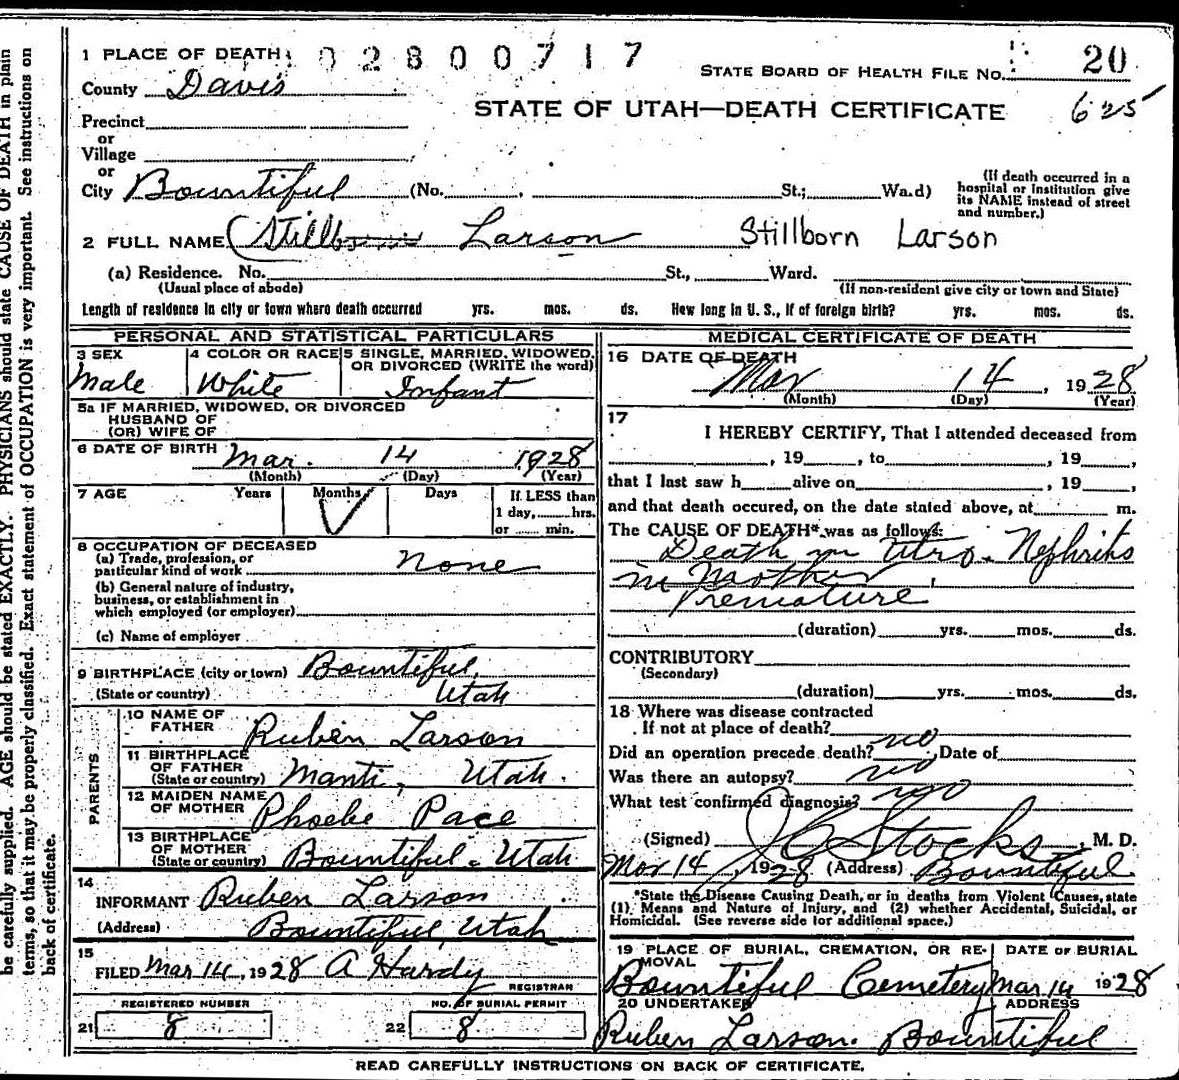 1 PLACE OF DEATH 02800717
STATE BOARD OF HEALTH FILE No. 20
County Davis
STATE OF UTAH—DEATH CERTIFICATE 625
Precinct
or
Village
or
City Bountiful (No. , St.; Wa.d)
(If death occurred in a
hospital or institution give
its NAME instead of street
and number.)
2 FULL NAME (Stillborn Larson Stillborn Larson
(a) Residence. No. St., Ward.
(Usual place of abode) (If non-resident give city or town and State)
Length of residence in city or town where death occurred yrs. mos. ds. How long in U. S., if of foreign birth? yrs. mos. ds.
PERSONAL AND STATISTICAL PARTICULARS
3 SEX 4 COLOR OR RACE 5 SINGLE, MARRIED, WIDOWED,
OR DIVORCED (WRITE the word)
Male White Infant
5a IF MARRIED, WIDOWED, OR DIVORCED
HUSBAND OF
(OR) WIFE OF
6 DATE OF BIRTH Mar. 14 1928
(Month) (Day) (Year)
7 AGE Years Months Days If LESS than
1 day, hrs.
or min.
8 OCCUPATION OF DECEASED
(a) Trade, profession, or
particular kind of work None
(b) General nature of industry,
business, or establishment in
which employed (or employer)
(c) Name of employer
9 BIRTHPLACE (city or town) Bountiful,
(State or country) Utah
PARENTS
10 NAME OF
FATHER Ruben Larson
11 BIRTHPLACE
OF FATHER
(State or country) Manti, Utah.
12 MAIDEN NAME
OF MOTHER Phoebe Pace
13 BIRTHPLACE
OF MOTHER
(State or country) Bountiful - Utah
14
INFORMANT Ruben Larson
(Address) Bountiful, Utah
15
FILED Mar 14, 1928 A Hardy
REGISTRAR
REGISTERED NUMBER NO. OF BURIAL PERMIT
21 8 22 8
MEDICAL CERTIFICATE OF DEATH
16 DATE OF DEATH
Mar 14, 1928
(Month) (Day) (Year)
17
I HEREBY CERTIFY, That I attended deceased from
, 19 , to , 19 ,
that I last saw h alive on , 19 ,
and that death occured, on the date stated above, at m.
The CAUSE OF DEATH* was as follows:
Death in Utro - Nephritis
in Mother,
Premature
(duration) yrs. mos. ds.
CONTRIBUTORY
(Secondary)
(duration) yrs. mos. ds.
18 Where was disease contracted
If not at place of death?
Did an operation precede death? no Date of
Was there an autopsy? no
What test confirmed diagnosis? no
(Signed) J C Stocks, M. D.
Mar 14, 1928 (Address) Bountiful
*State the Disease Causing Death, or in deaths from Violent Causes, state
(1) Means and Nature of Injury, and (2) whether Accidental, Suicidal, or
Homicidal. (See reverse side for additional space.)
19 PLACE OF BURIAL, CREMATION, OR RE- DATE OF BURIAL
MOVAL
Bountiful Cemetery Mar 14 1928
20 UNDERTAKER ADDRESS
Ruben Larson. Bountiful
READ CAREFULLY INSTRUCTIONS ON BACK OF CERTIFICATE.
be carefully supplied. AGE should be stated EXACTLY. PHYSICIANS should state CAUSE OF DEATH in plain
terms, so that it may be properly classified. Exact statement of OCCUPATION is very important. See instructions on
back of certificate.